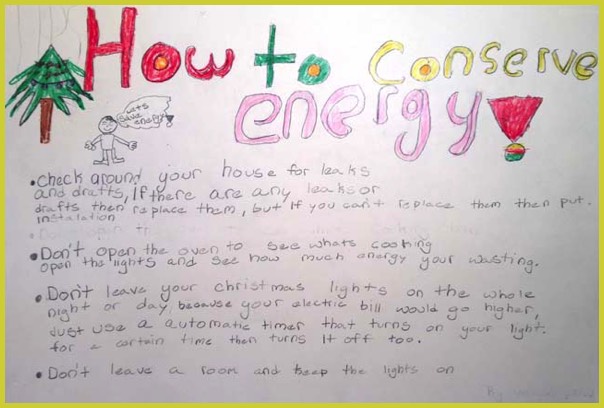 How to Conserve
energy!
Lets
save
energy!
• Check around your house for leaks
and drafts, If there are any leaks or
drafts then replace them, but if you can't replace them then put.
instalation
• Don't open the oven to see whats cooking
open the lights and see how much energy your wasting.
• Don't leave your christmas lights on the whole
night or day, because your electric bill would go higher,
Just use a automatic timer that turns on your light.
for a certain time then turns it off too.
• Don't leave a room and keep the lights on
By